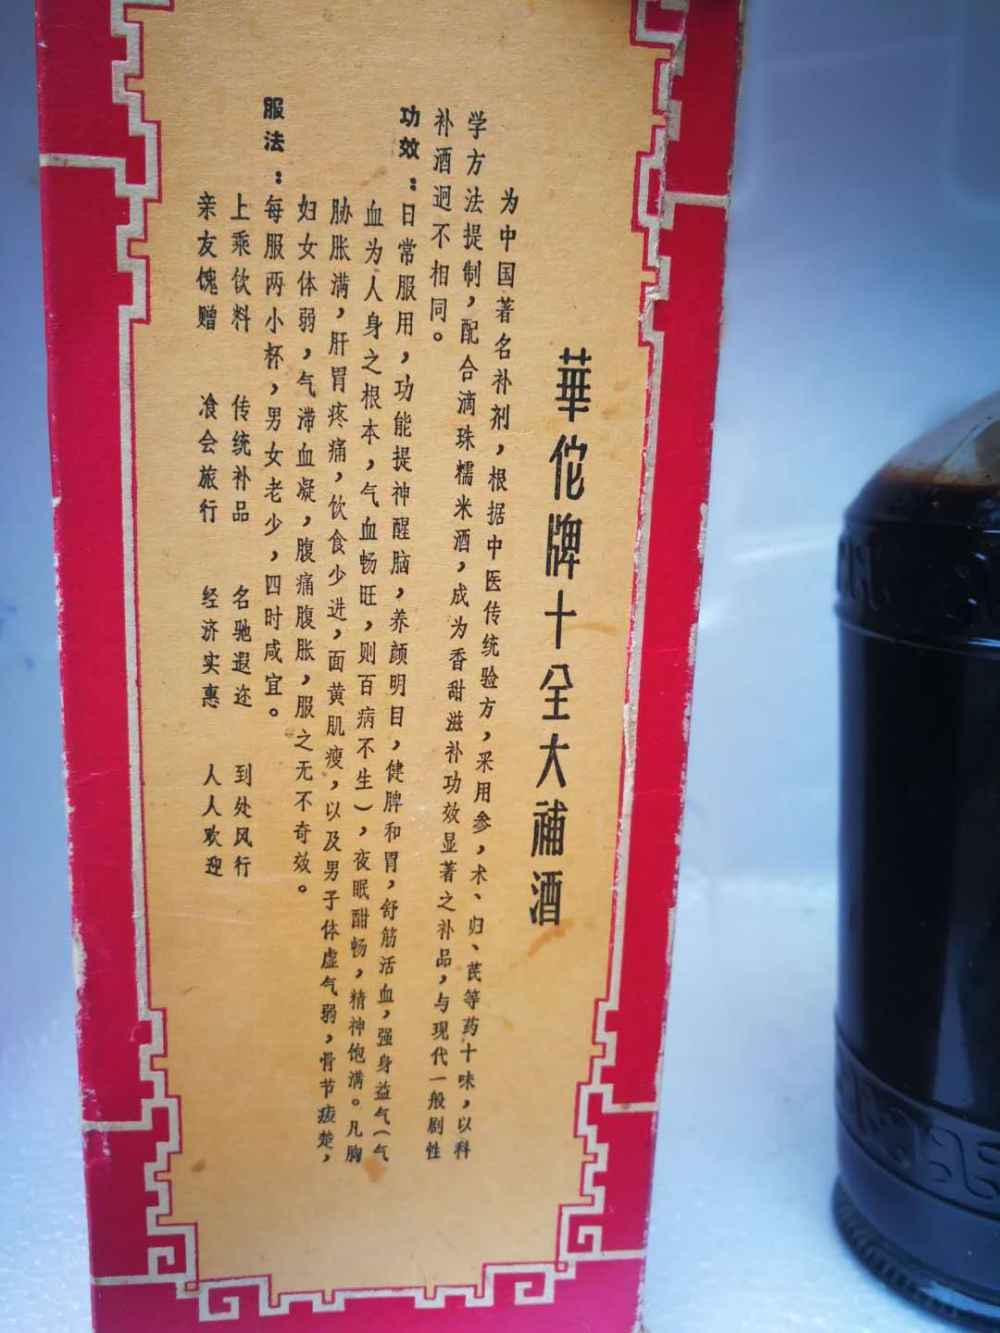 華佗牌十全大補酒
为中国著名补剂，根据中医传统验方，采用参，术、归、芪等药十味，以科
学方法提制，配合滴珠糯米酒，成为香甜滋补功效显著之补品，与现代一般剧性
补酒迥不相同。
功效：日常服用，功能提神醒脑，养颜明目，健脾和胃，舒筋活血，强身益气（气
血为人身之根本，气血畅旺，则百病不生），夜眠酣畅，精神饱满。凡胸
胁胀满，肝胃疼痛，饮食少进，面黄肌瘦，以及男子体虚气弱，骨节痠楚，
妇女体弱，气滞血凝，腹痛腹胀，服之无不奇效。
服法：每服两小杯，男女老少，四时咸宜。
上乘饮料 传统补品 名驰遐迩 到处风行
亲友馈赠 飡会旅行 经济实惠 人人欢迎